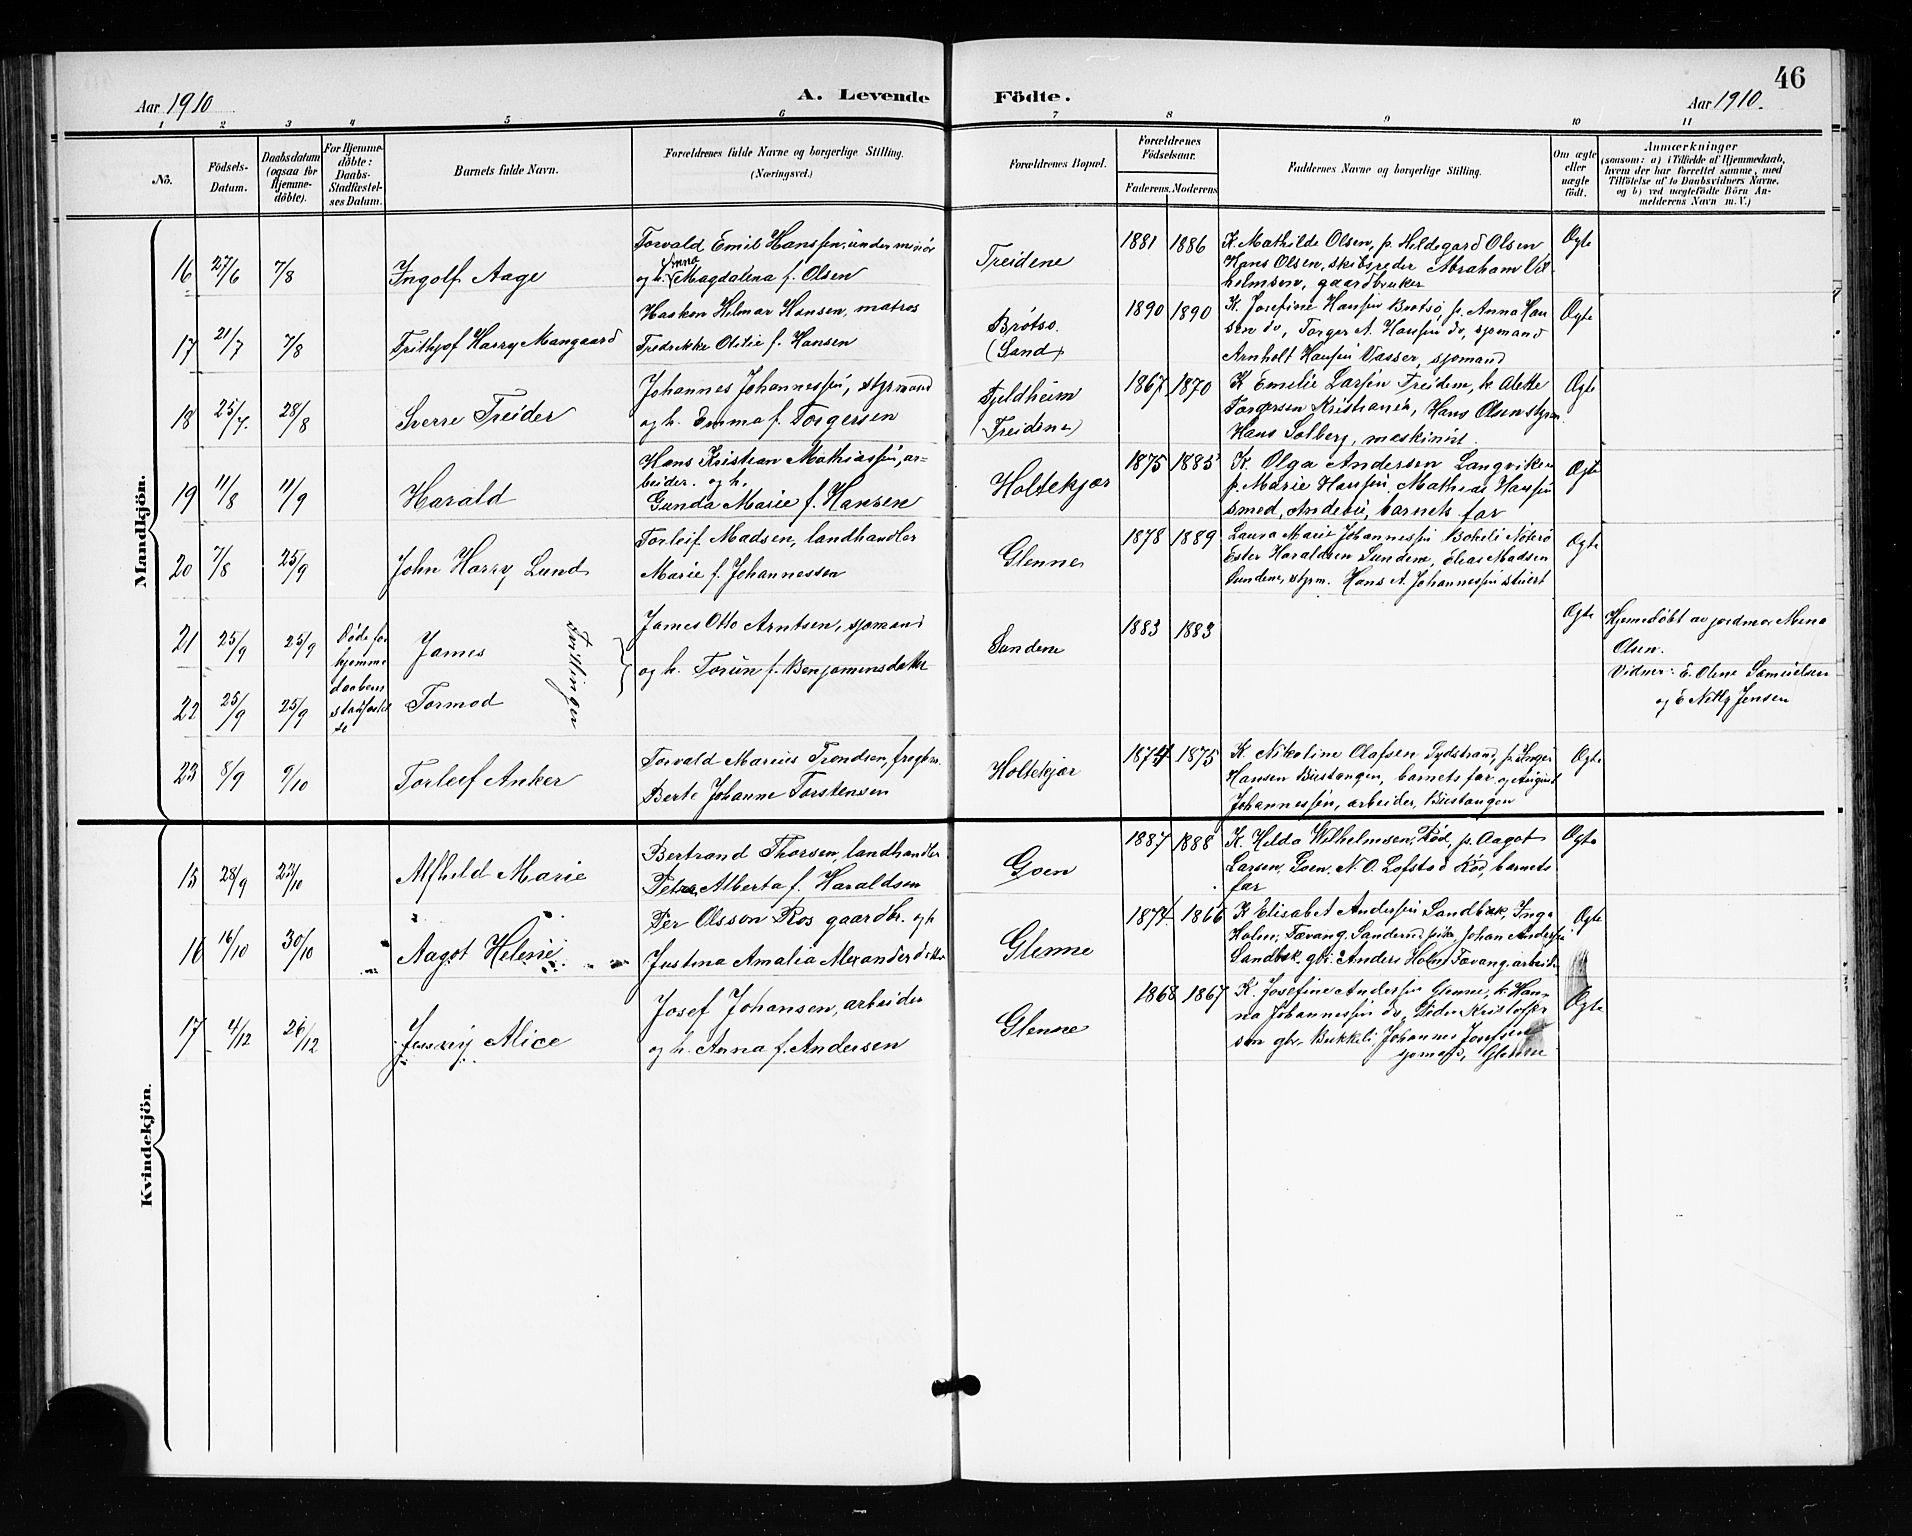 46
Aar 1910
A. Levende
Födte.
Aar 1910.
1 2 3 4 5 6 7 8 9 10 11
No.
Födsels-
Datum.
Daabsdatum
(ogsaa for
Hjemme-
döbte).
For Hjemme-
döbte:
Daabs-
Stadfæstel-
ses Datum.
Barnets fulde Navn.
Forældrenes fulde Navne og borgerlige Stilling.
(Næringsvei.)
Forældrenes Bopæl.
Forældrenes
Födselsaar.
Faderens. Moderens.
Faddernes Navne og borgerlige Stilling.
Om ægte
eller
uægte
födt.
Anmærkninger
(saasom: a) i Tilfælde af Hjemmedaab,
hvem der har forrettet samme, med
Tilföielse af to Daabsvidners Navne,
og b) ved uægtefödte Börn An-
melderens Navn m. V.)
Mandkjön.
16 27/6 7/8
Ingolf Aage
Torvald Emil Hanssen, underminør
Anna
og h. Magdalena f. Olsen
Treidene
1881 1886
K. Mathilde Olsen, p. Hildegard Olsen
Hans Olsen, skibsreder Abraham Vil-
helmsen, gaardbruker
Ægte
17 21/7 7/8
Frithjof Harry Mangaard
Haakon Hilmar Hansen, matros
Fredrikke Otilie f. Hansen
Brøtsø
(Sand)
1890 1890
K. Josefine Hansen Brøtsø, p. Anna Han-
sen do, Torger A. Hansen do, sjømand
Arnholt Hansen Vasser, sjømand
Ægte
18 25/7. 28/8
Sverre Treider
Johannes Johannessen, styrmand
og h. Emma f. Torgersen
Fjeldheim
(Treidene)
1867 1870
K Emilie Larsen Treidene, k Alette
Torgersen Kristiania, Hans Olsen styrm
Hans Solberg, maskinist.
Ægte
19 11/8 11/9
Harald
Hans Kristian Mathiassen, ar-
beider. og h.
Gunda Marie f. Hansen
Holtekjær
1875 1885
K. Olga Andersen Langviken
p. Marie Hansen, Mathias Hansen
smed, Andebu, barnets far
Ægte
20 7/8 25/9
John Harry Lund
Torleif Madsen, landhandler
Marie f. Johannessen
Glenne
1878 1889
Laura Marie Johannessen Nøterø
Ester Haraldsen Sundene, Elias Madsen
Sundene, styrm. Hans A. Johannessen stuert
Ægte
21 25/9 25/9
Døde før
hjemme
daabens
stadfæstel
se
James
Tvillinger
James Otto Arntsen, sjømand
og h. Torun f. Benjaminsdatter
Sundene
1883 1883
Ægte
Hjemedøbt av jordmor Mina
Olsen.
Vidner: E. Oline Samuelsen
og E Nelly Jensen
22 25/9 25/9
Tormod
23 8/9 9/10
Torleif Anker
Torvald Marius Trondsen,
Berte Johanne Torstensen
Holtekjær
1874 1875
K Nikoline Olafsen Sydstrand, p. Inger
Hansen Buestangen, barnets far og August
Johannessen, arbeider, Buestangen
Ægte
Kvindekjön.
15 28/9 23/10
Alfhild Marie
Bertrand Thorsen, landhandler
Petra Alberta f. Haraldsen
Goen
1887 1888
K. Hilda Wilhelmsen, Rød, p. Aagot
Larsen, Goen, N. O. Lofstad Rød, barnets
far
Ægte
16 16/10 30/10
Aagot Helene
Per Olsson Ros gaardbr. og h
Justina Amalia Alexandersdatter
Glenne
1874 1866
K Elisabet Andersen Sandbæk, Inga
Holm, Tævang, Sandernd. pike, Johan Andersen
Sandbæk. gbr. Anders Holm Tævang. arbeid.
Ægte
17 4/12 26/12
Jenny Alice
Josef Johansen, arbeider
og h. Anna f. Andersen
Glenne
1868 1867
K. Josefine Andersen Glenne, k. Han-
na Johannessen do, Peder Kristoffer-
sen gbr. Bukkeli, Johannes Josefsen
sjømand, Glenne
Ægte